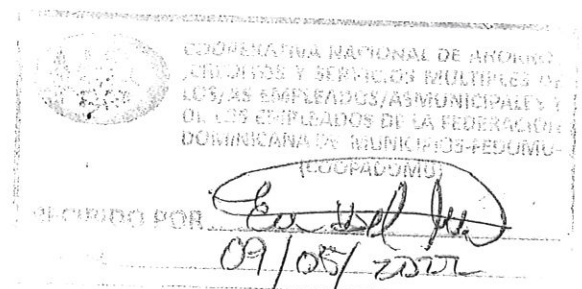 COOPERATIVA NACIONAL DE AHORRO,
CREDITOS Y SERVICIOS MULTIPLES DE
LOS/AS EMPLEADOS/AS MUNICIPALES Y
DE LOS EMPLEADOS DE LA FEDERACION
DOMINICANA DE MUNICIPIOS-FEDOMU-
(COOPADOMU)
RECIBIDO POR
09/05/2022